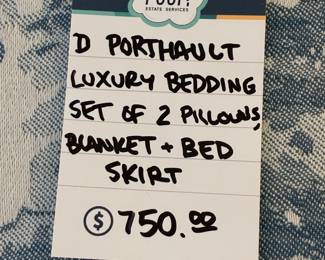 ESTATE SERVICES
D PORTHAULT
LUXURY BEDDING
SET OF 2 PILLOWS,
BLANKET + BED
SKIRT
$ 750.00